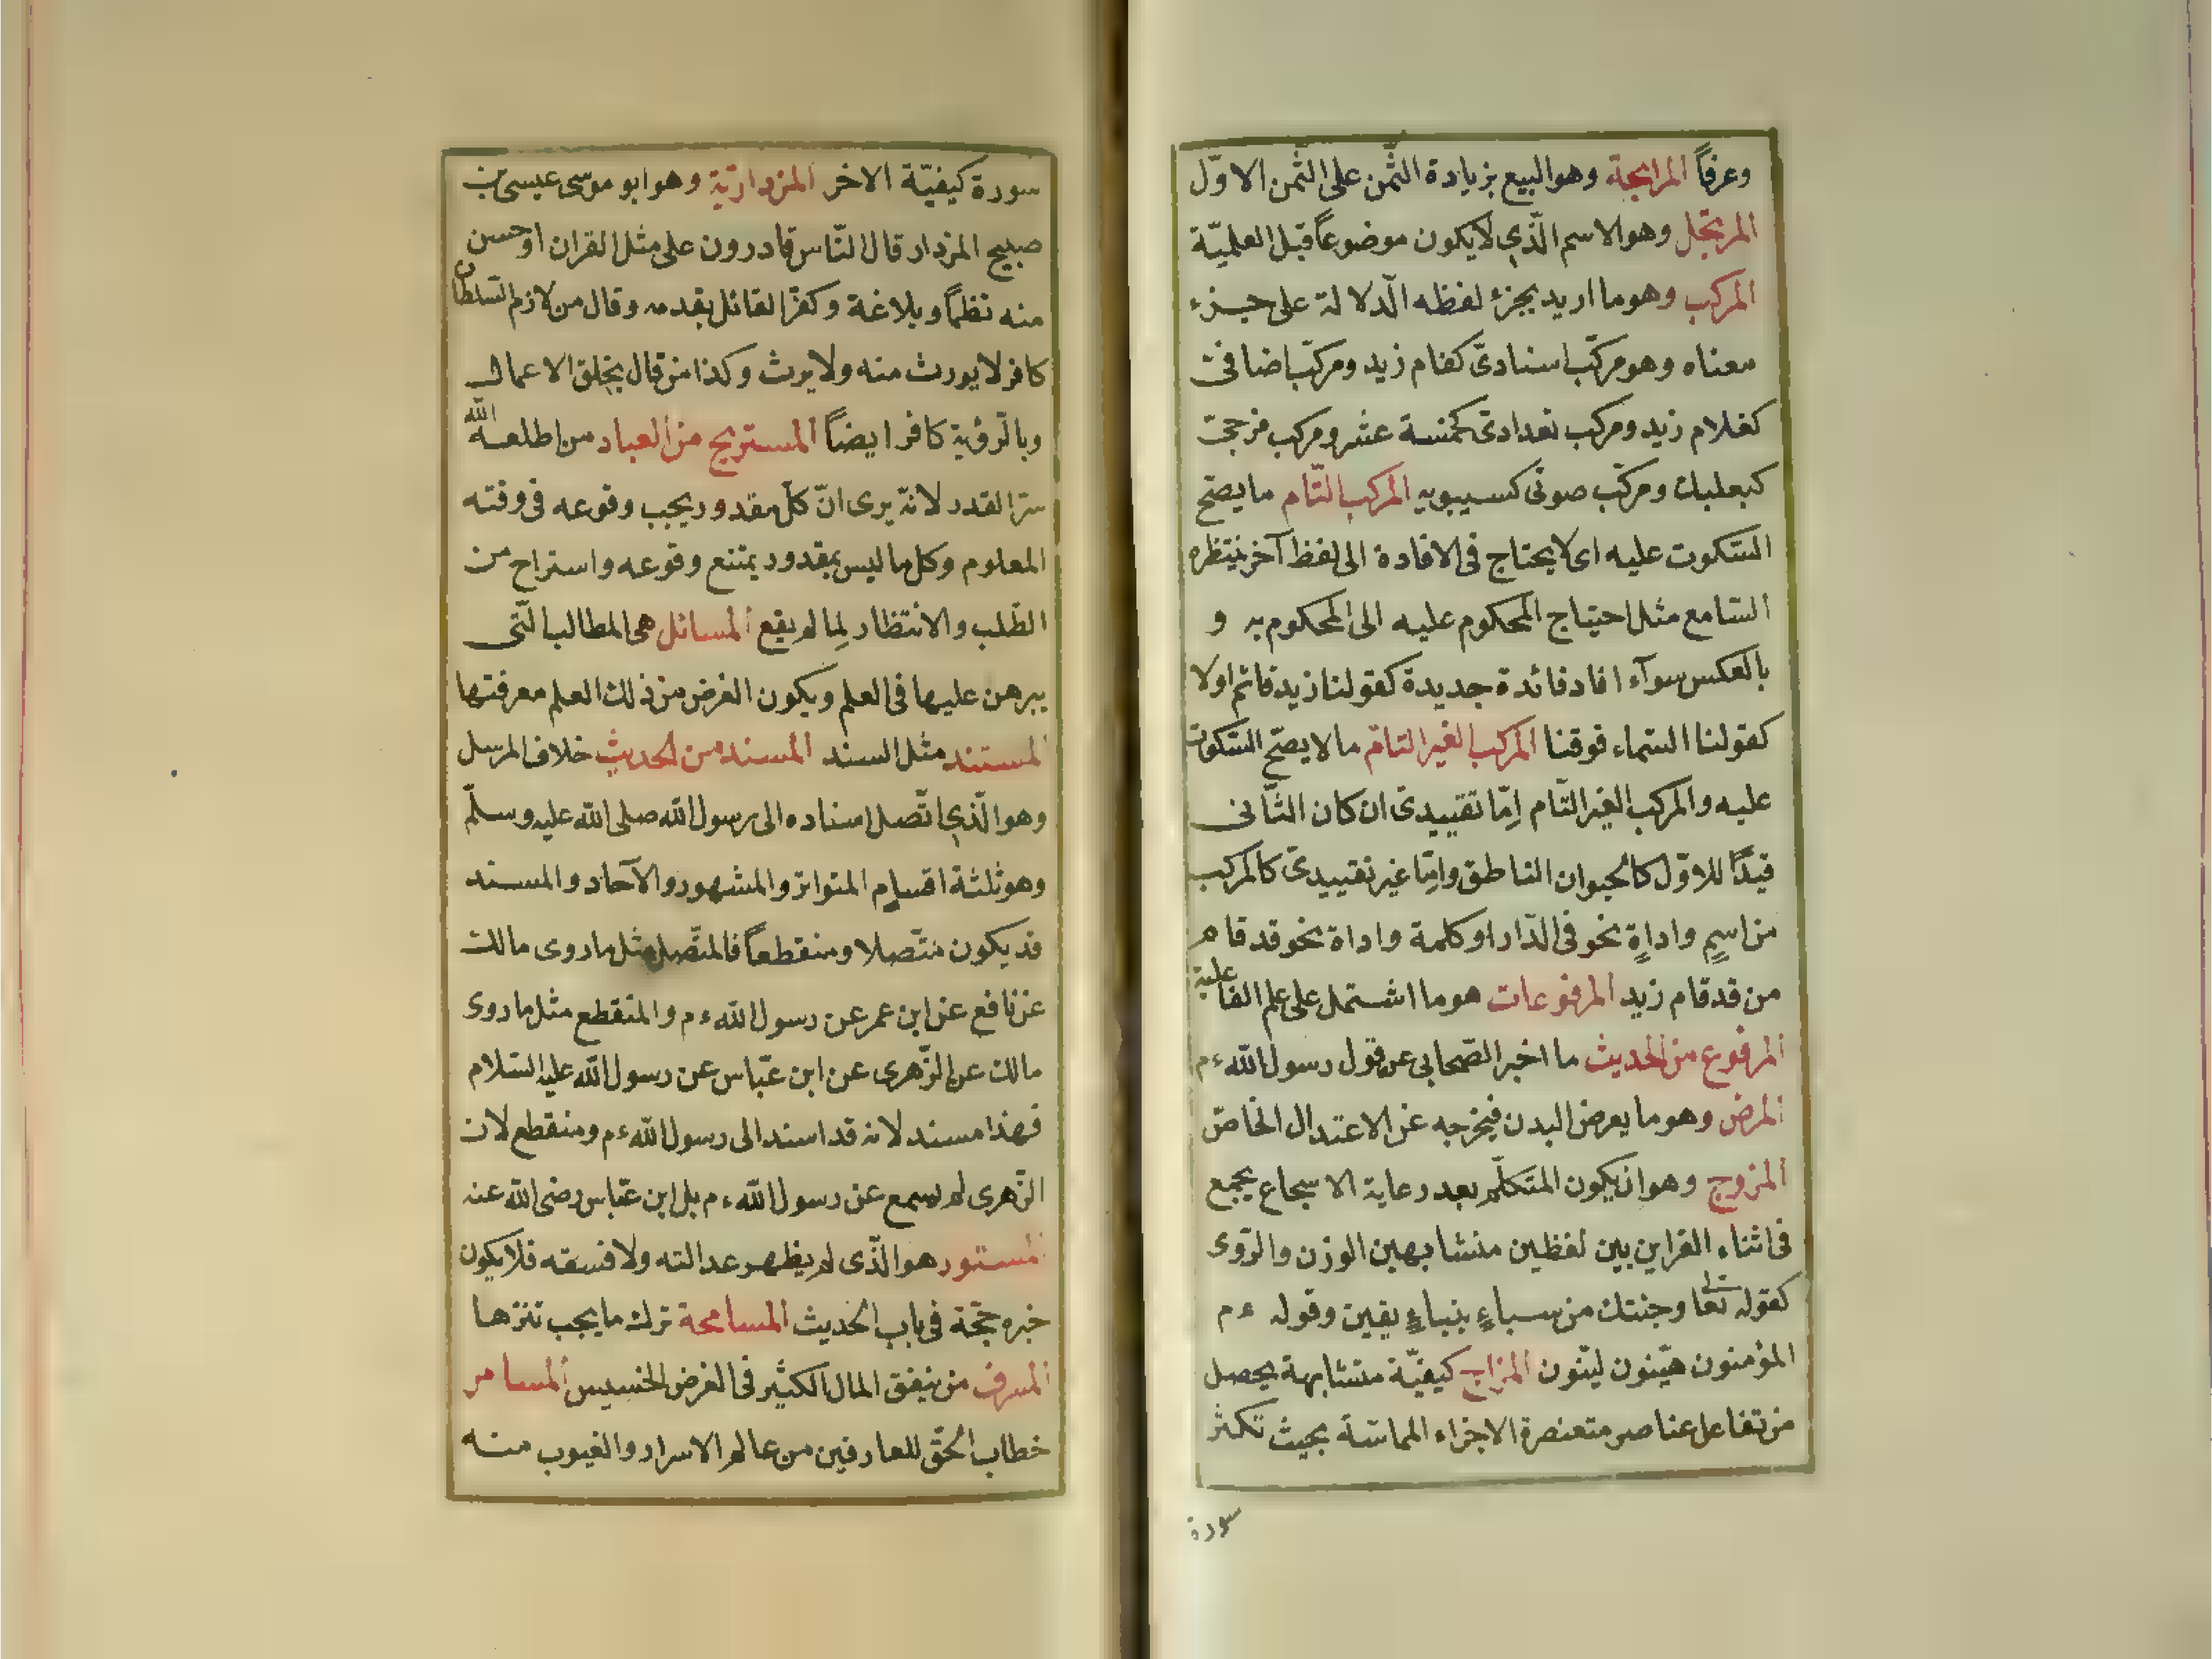 وعرفاً المرابحة وهو البيع بزيادة الثّمن على الثّمن الاوّل
المرتجل وهو الاسم الّذى لا يكون موضوعاً قبل العلميّة
المركب وهو ما اريد بجزء لفظه الدّلالة على جزء
معناه وهو مركّب اسنادىّ كقام زيد ومركّب اضافىّ
كغلام زيد ومركب تعدادىّ كخمسة عشر ومركب مزجىّ
كبعلبك ومركّب صوتى كسيبويه المركب التّام ما يصحّ
السّكوت عليه اى لا يحتاج فى الافادة الى لفظ آخر ينتظره
السّامع مثل احتياج المحكوم عليه الى المحكوم به و
بالعكس سوآء افاد فائدة جديدة كقولنا زيد قائم اولا
كقولنا السّماء فوقنا المركب الغير التامّ ما لا يصحّ السّكوت
عليه والمركب الغير التّام اِمّا تقييدىّ ان كان الثّانى
قيدًا للاوّل كالحيوان الناطق وامّا غير تقييدىّ كالمركب
من اسمٍ واداةٍ نحو فى الدّار او كلمة واداة نحو قد قام
من قد قام زيد المرفوعات هو ما اشتمل على علم الفاعلية
المرفوع من الحديث ما اخبر الصّحابى عن قول رسول الله ءم
المرض وهو ما يعرض البدن فيخرجه عن الاعتدال الخاصّ
المزوج وهو ان يكون المتكلّم بعد رعاية الاسجاع يجمع
فى اثناء القراين بين لفظين متشابهين الوزن والرّوى
كقوله تعالى وجئتك من سباءٍ بنباءٍ يقين وقوله ءم
المؤمنون هيّنون ليّنون المزاج كيفيّة متشابهة يحصل
من تفاعل عناصر متعنصرة الاجزاء المماسّة بحيث تكثر
سورة
سورة كيفيّة الاخر المزداريّة وهو ابو موسى عيسى بن
صبيح المزدار قال النّاس قادرون على مثل القران او حسن
منه نظماً وبلاغة وكفّر القائل بقدمه وقال من لازم السّلطان
كافر لا يورث منه ولا يرث وكذا من قال بخلق الاعمال
وبالرّؤية كافر ايضاً المستريح من العباد من اطلعه الله
سرّ القدر لانّه يرى انّ كلّ مقدور يجب وقوعه فى وقته
المعلوم وكل ما ليس بمقدور يمتنع وقوعه واستراح من
الطّلب والانتظار لِما لم يقع المسائل هى المطالب الّتى
يبرهن عليها فى العلم ويكون الغرض من ذلك العلم معرفتها
المستند مثل السند المسند من الحديث خلاف المرسل
وهو الّذى اتّصل اسناده الى رسول الله صلى الله عليه وسلّم
وهو ثلثة اقسام المتواتر والمشهور والآحاد والمسند
قد يكون متّصلا ومنقطعاً فالمتّصل مثل ما روى مالك
عن نافع عن ابن عمر عن رسول الله ءم والمنقطع مثل ما روى
مالك عن الزّهرى عن ابن عبّاس عن رسول الله عليه السّلام
فهذا مسند لانه قد اسند الى رسول الله ءم ومنقطع لان
الزّهرى لم يسمع عن رسول الله ءم بل ابن عبّاس رضى الله عنه
المستور هو الّذى لم يظهر عدالته ولا فسقه فلا يكون
خبره حجّة فى باب الحديث المسامحة ترك ما يجب تنزها
المسرف من ينفق المال الكثير فى الغرض الخسيس المسامر
خطاب الحقّ للعارفين من عالم الاسرار والغيوب منه